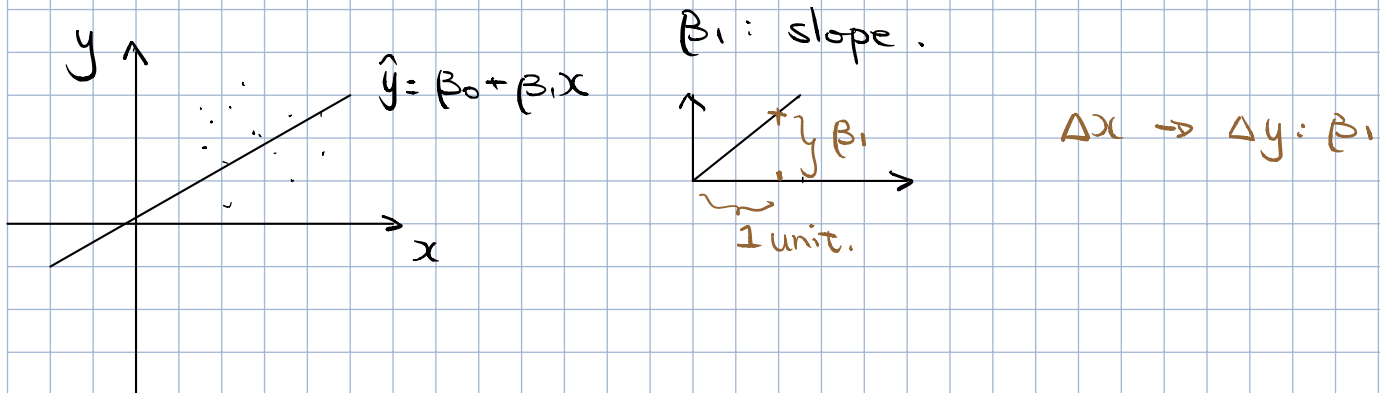 y
ŷ = β₀ + β₁x
x
β₁ : slope .
β₁
1 unit.
Δx → Δy : β₁